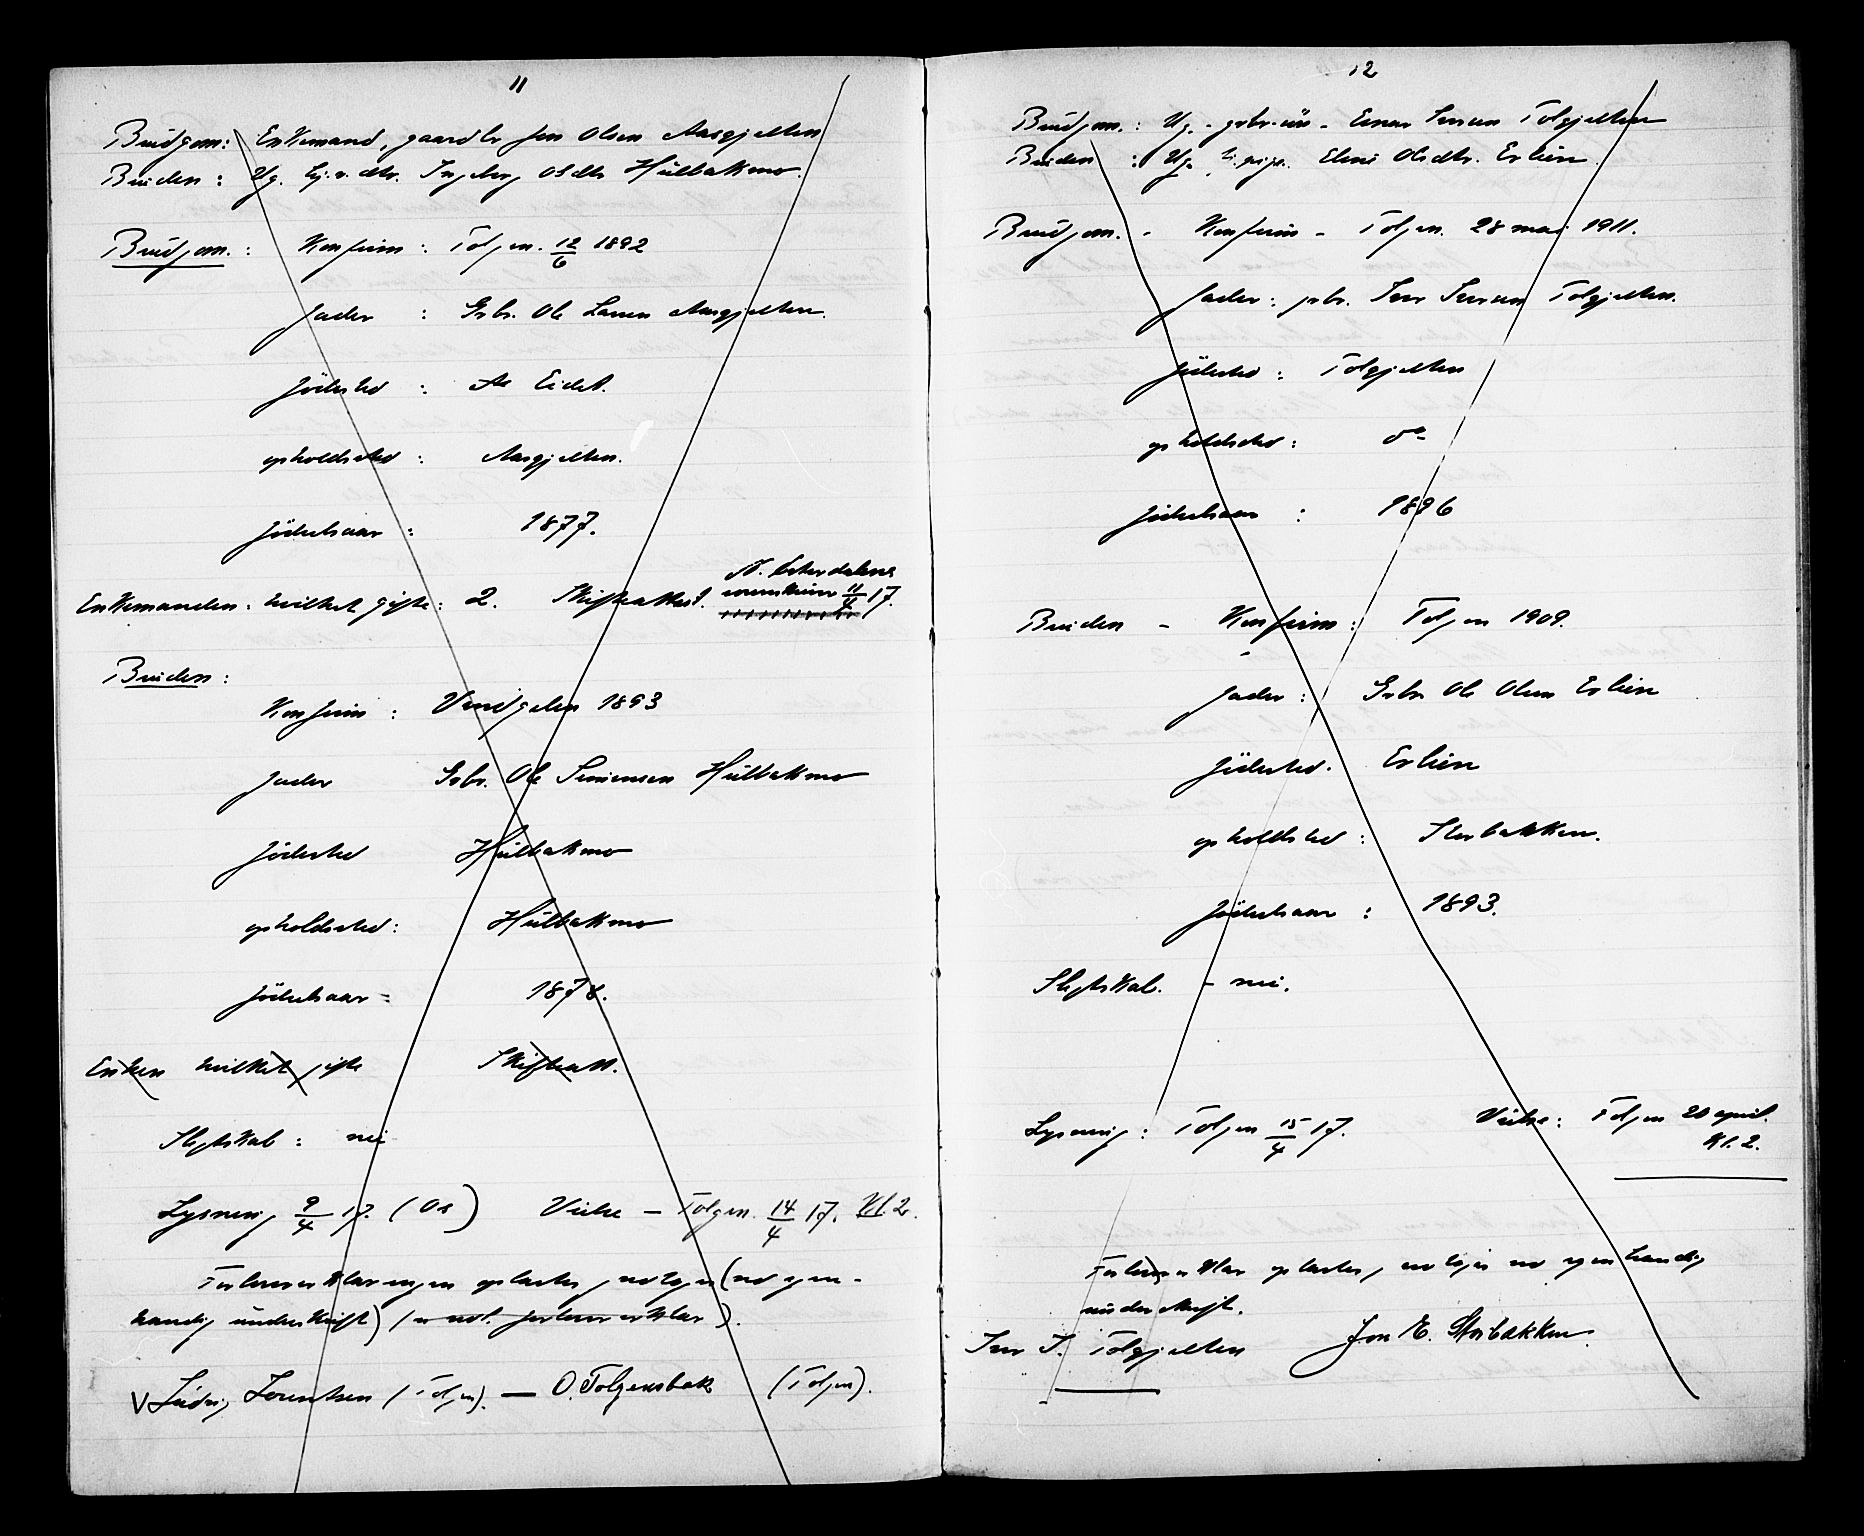 11
Brudgom: Enkemand, gaardbr Jon Olsen Aasgjelten
Bruden: Ug. hj.v. dtr. Ingeborg Olsdtr Hulbakmo.
Brudgom.: Konfirm: Tolgen. 12/6 1892
fader : Grbr. Ole Larsen Aasgjelten.
födested : Aa Eidet.
opholdssted : Aasgjelten.
födselsaar : 1877.
Enkemanden: hvilket gifte: 2. Skifteattest. N. Østerdalens sorenskriver 11/4 17.
Bruden:
Konfirm : Vingelen 1893
fader Grbr. Ole Simensen Hulbakmo
födested Hulbakmo
opholdssted: Hulbakmo
födselsaar 1878.
Enken hvilket gifte Skifteatt.
Slegtskab : nei
Lysning 9/4 17. (Os) Vielse – Tolgen. 14/4 17. Kl 2.
Forloververklaringen oplæstes, vedtoges (ved egen-
hændig underskrift)
V Ludvig Lorentzen (Tolgen). — O. Tolgensbak (Tolgen).
12
Brudgom.: Ug. - gbr.sön - Einar Iversen Tolgjelten
Bruden : Ug. pige. Eline Olsdtr. Erlien.
Brudgom. - Konfirm - Tolgen. 28 mai 1911.
fader: gbr. Iver Iversen Tolgjelten.
födested : Tolgjelten
opholdssted : do
födselsaar : 1896
Bruden - Konfirm: Tolgen 1909.
fader: Grbr Ole Olsen Erlien
födested. Erlien
opholdssted : Storbakken.
födselsaar : 1893.
Slegtskab. - nei.
Lysning : Tolgen 15/4 17. Vielse: Tolgen 20 april.
Kl. 2.
Forloververklar oplæstes, vedtages ved egenhændig
underskrift.
Iver I. Tolgjelten Jon E. Storbakken.